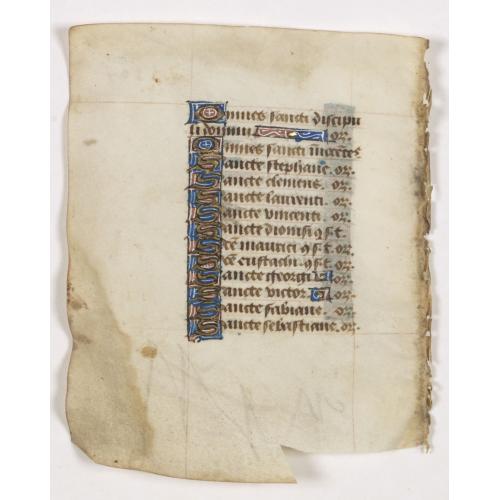 Omnes sancti discipu
li domini or.
Omnes sancti inocētes
Sancte stephane. or.
Sancte clemens. or.
Sancte laurenti. or.
Sancte vincenti. or.
Sancte dionisi cū s. t.
Scē maurici cū s. t. or.
Scē eustachi. cū s. t. or.
Sancte georgi or.
Sancte victor. or.
Sancte fabiane. or.
Sancte sebastiane. or.